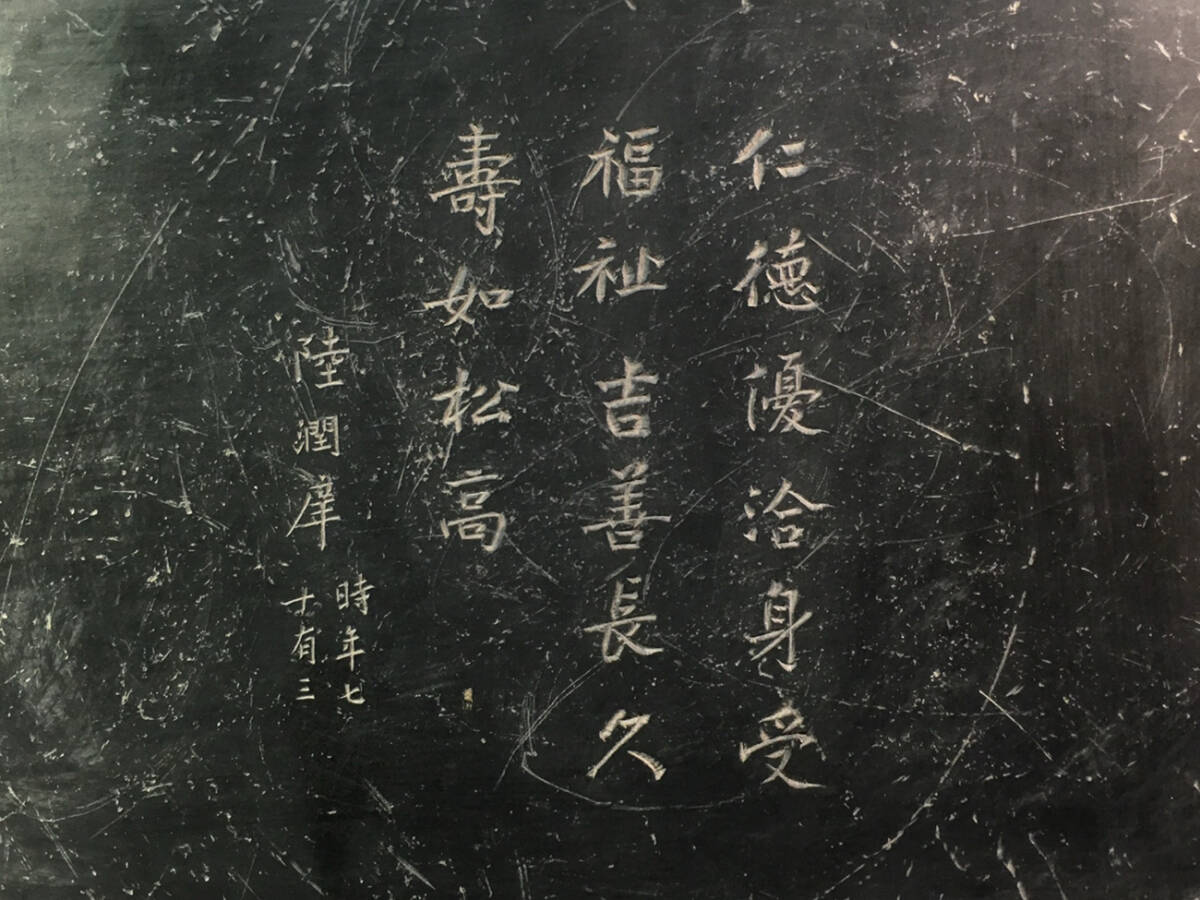 仁德優洽身受
福祉吉善長久
壽如松高
陸潤庠
時年七
十有三